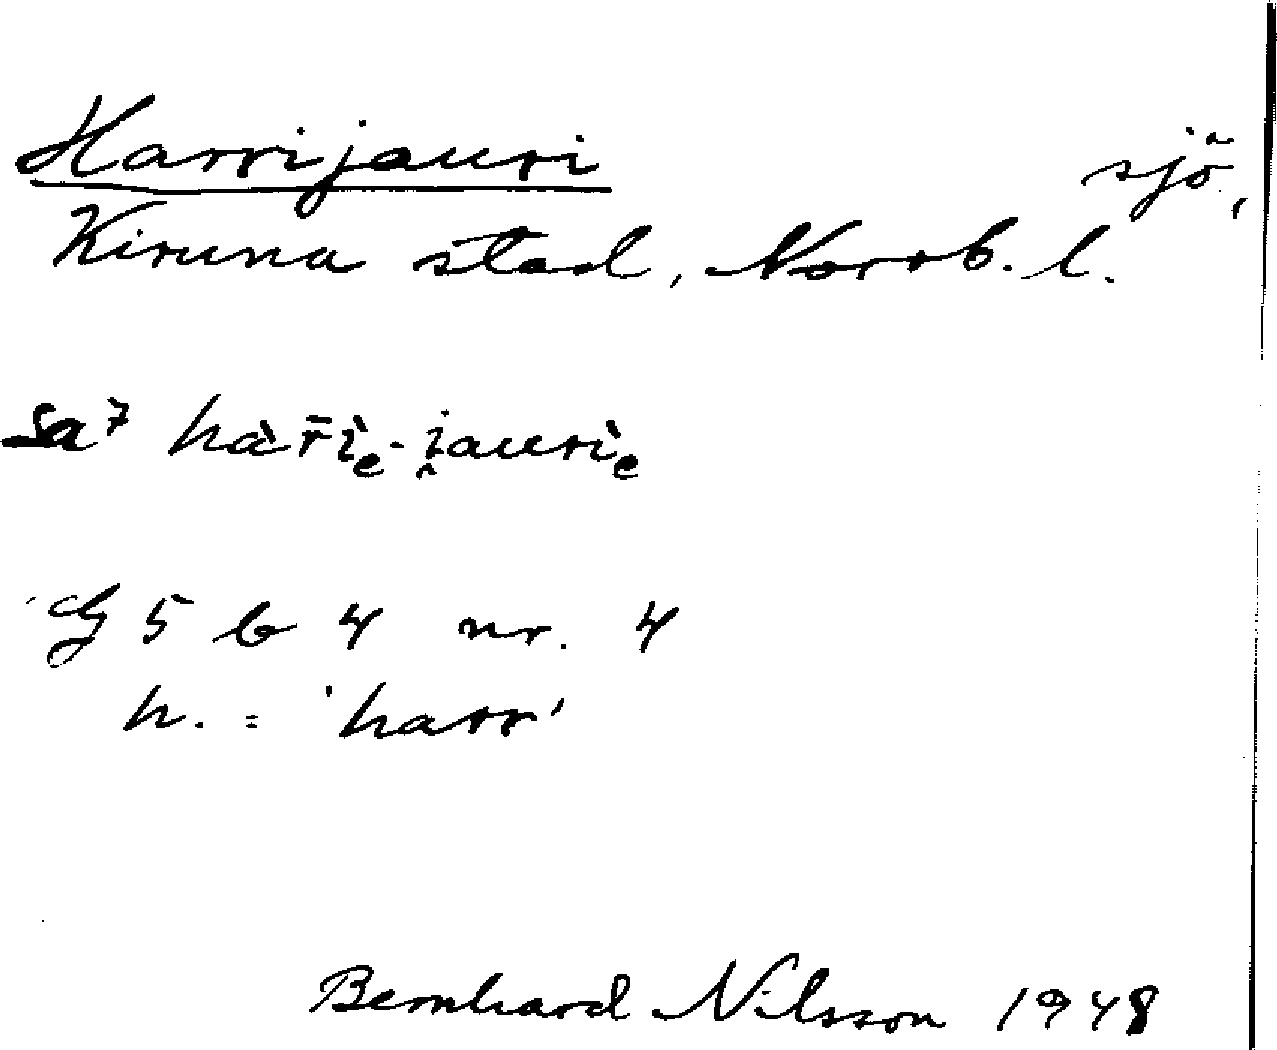 Harrijauri sjö,
Kiruna stad, Norrb. l.
Sa⁷ hàr̄ìₑ-i̯auriₑ̀
G 5 b 4 nr. 4
h. = 'harr'
Bernhard Nilsson 1948